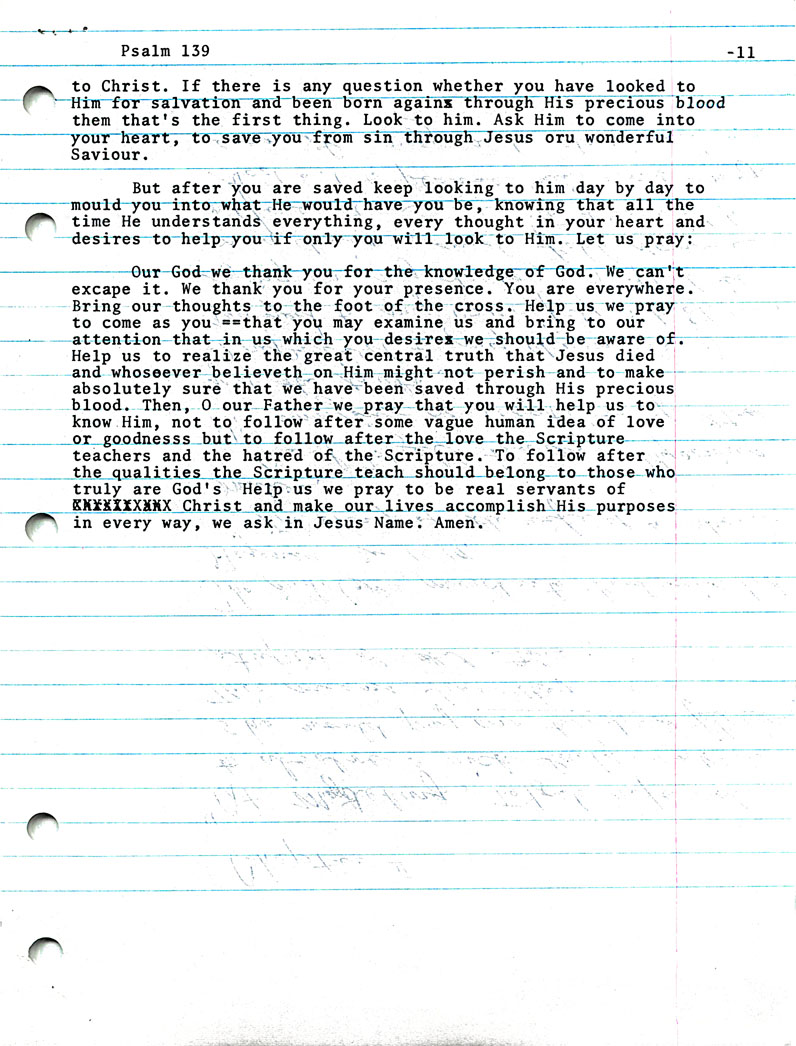 Psalm 139 -11
to Christ. If there is any question whether you have looked to
Him for salvation and been born againx through His precious blood
them that's the first thing. Look to him. Ask Him to come into
your heart, to save you from sin through Jesus oru wonderful
Saviour.
But after you are saved keep looking to him day by day to
mould you into what He would have you be, knowing that all the
time He understands everything, every thought in your heart and
desires to help you if only you will look to Him. Let us pray:
Our God we thank you for the knowledge of God. We can't
excape it. We thank you for your presence. You are everywhere.
Bring our thoughts to the foot of the cross. Help us we pray
to come as you ==that you may examine us and bring to our
attention that in us which you desirex we should be aware of.
Help us to realize the great central truth that Jesus died
and whosoever believeth on Him might not perish and to make
absolutely sure that we have been saved through His precious
blood. Then, O our Father we pray that you will help us to
know Him, not to follow after some vague human idea of love
or goodnesss but to follow after the love the Scripture
teachers and the hatred of the Scripture. To follow after
the qualities the Scripture teach should belong to those who
truly are God's Help us we pray to be real servants of
Christ and make our lives accomplish His purposes
in every way, we ask in Jesus Name. Amen.